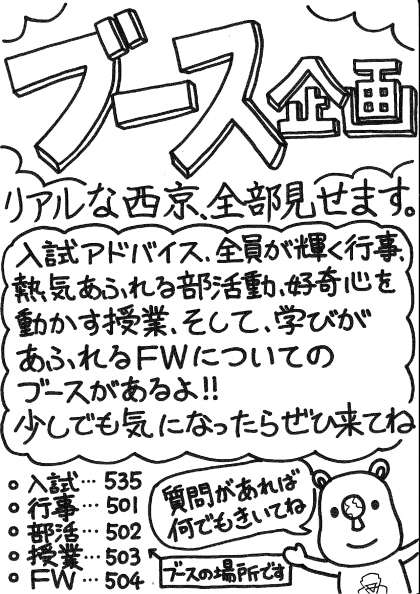 ブース企画
リアルな西京、全部見せます。
入試アドバイス、全員が輝く行事、
熱気あふれる部活動、好奇心を
動かす授業、そして、学びが
あふれるFWについての
ブースがあるよ!!
少しでも気になったらぜひ来てね
入試…535
行事…501
部活…502
授業…503
FW…504
質問があれば
何でもきいてね
ブースの場所です